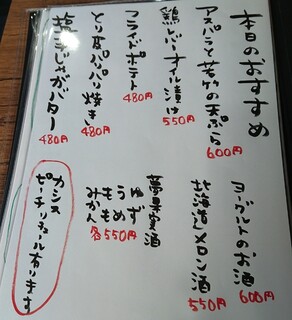 本日のおすすめ
アスパラと若竹の天ぷら
600円
鶏レバーオイル漬け
550円
フライドポテト
480円
とり皮パリパリ焼き
480円
塩辛じゃがバター
480円
ヨーグルトのお酒
600円
北海道メロン酒
550円
夢果実酒
ゆず
うめ
もも
みかん
各550円
カシンス
ピーチリキュール有ります